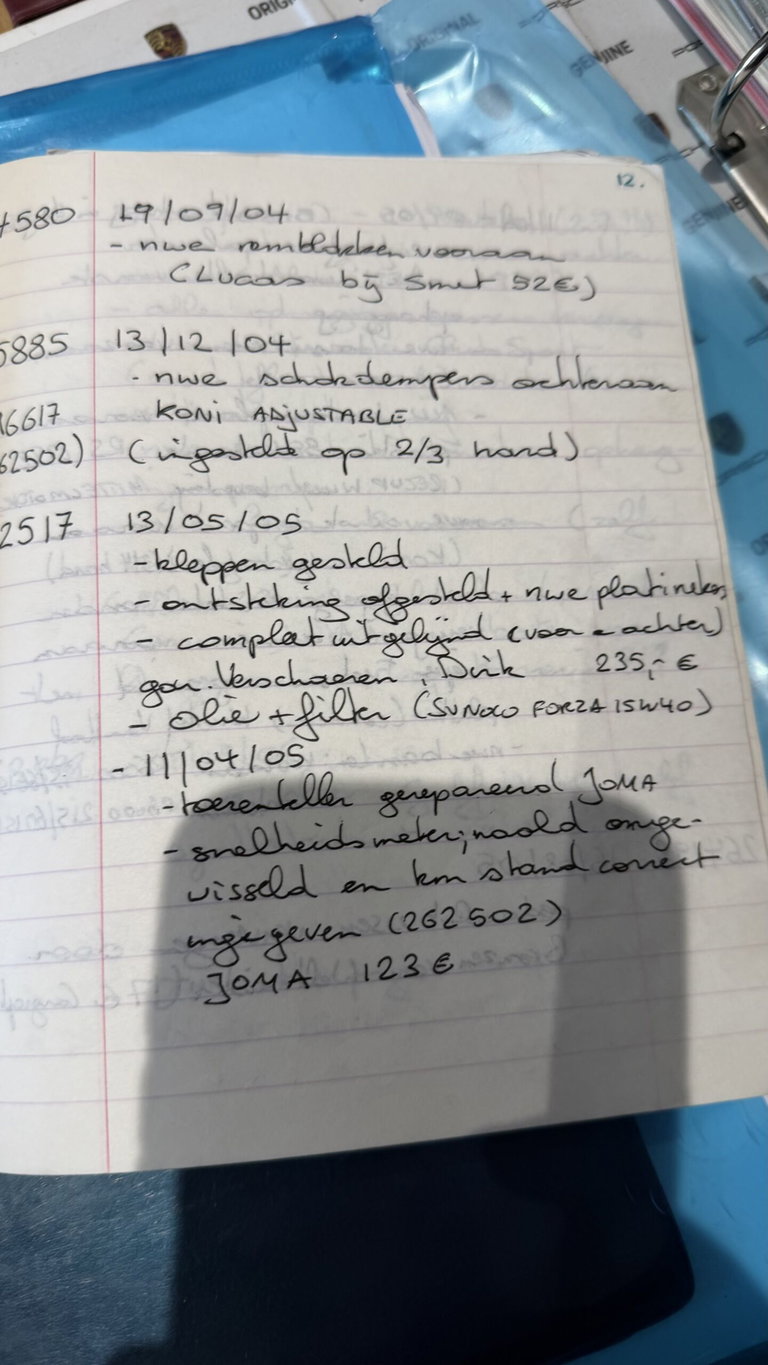 ORIGI
ORIGINAL
GENUINE
GENUINE
12.
580 19/09/04
- nwe remblokken vooraan
(Lucas bij Smet 52€)
5885 13/12/04
- nwe schokdempers achteraan
6617 KONI ADJUSTABLE
62502) (ingesteld op 2/3 hard)
2517 13/05/05
- kleppen gesteld
- ontsteking afgesteld + nwe platineken
- compleet uitgelijnd (voor + achter)
gar. Verschaeren, Dirk 235,- €
- olie + filter (SUNOCO FORZA 15W40)
- 11/04/05
- toerenteller gerepareerd JOMA
- snelheidsmeter; naald omge-
wisseld en km stand correct
ingegeven (262502)
JOMA 123€